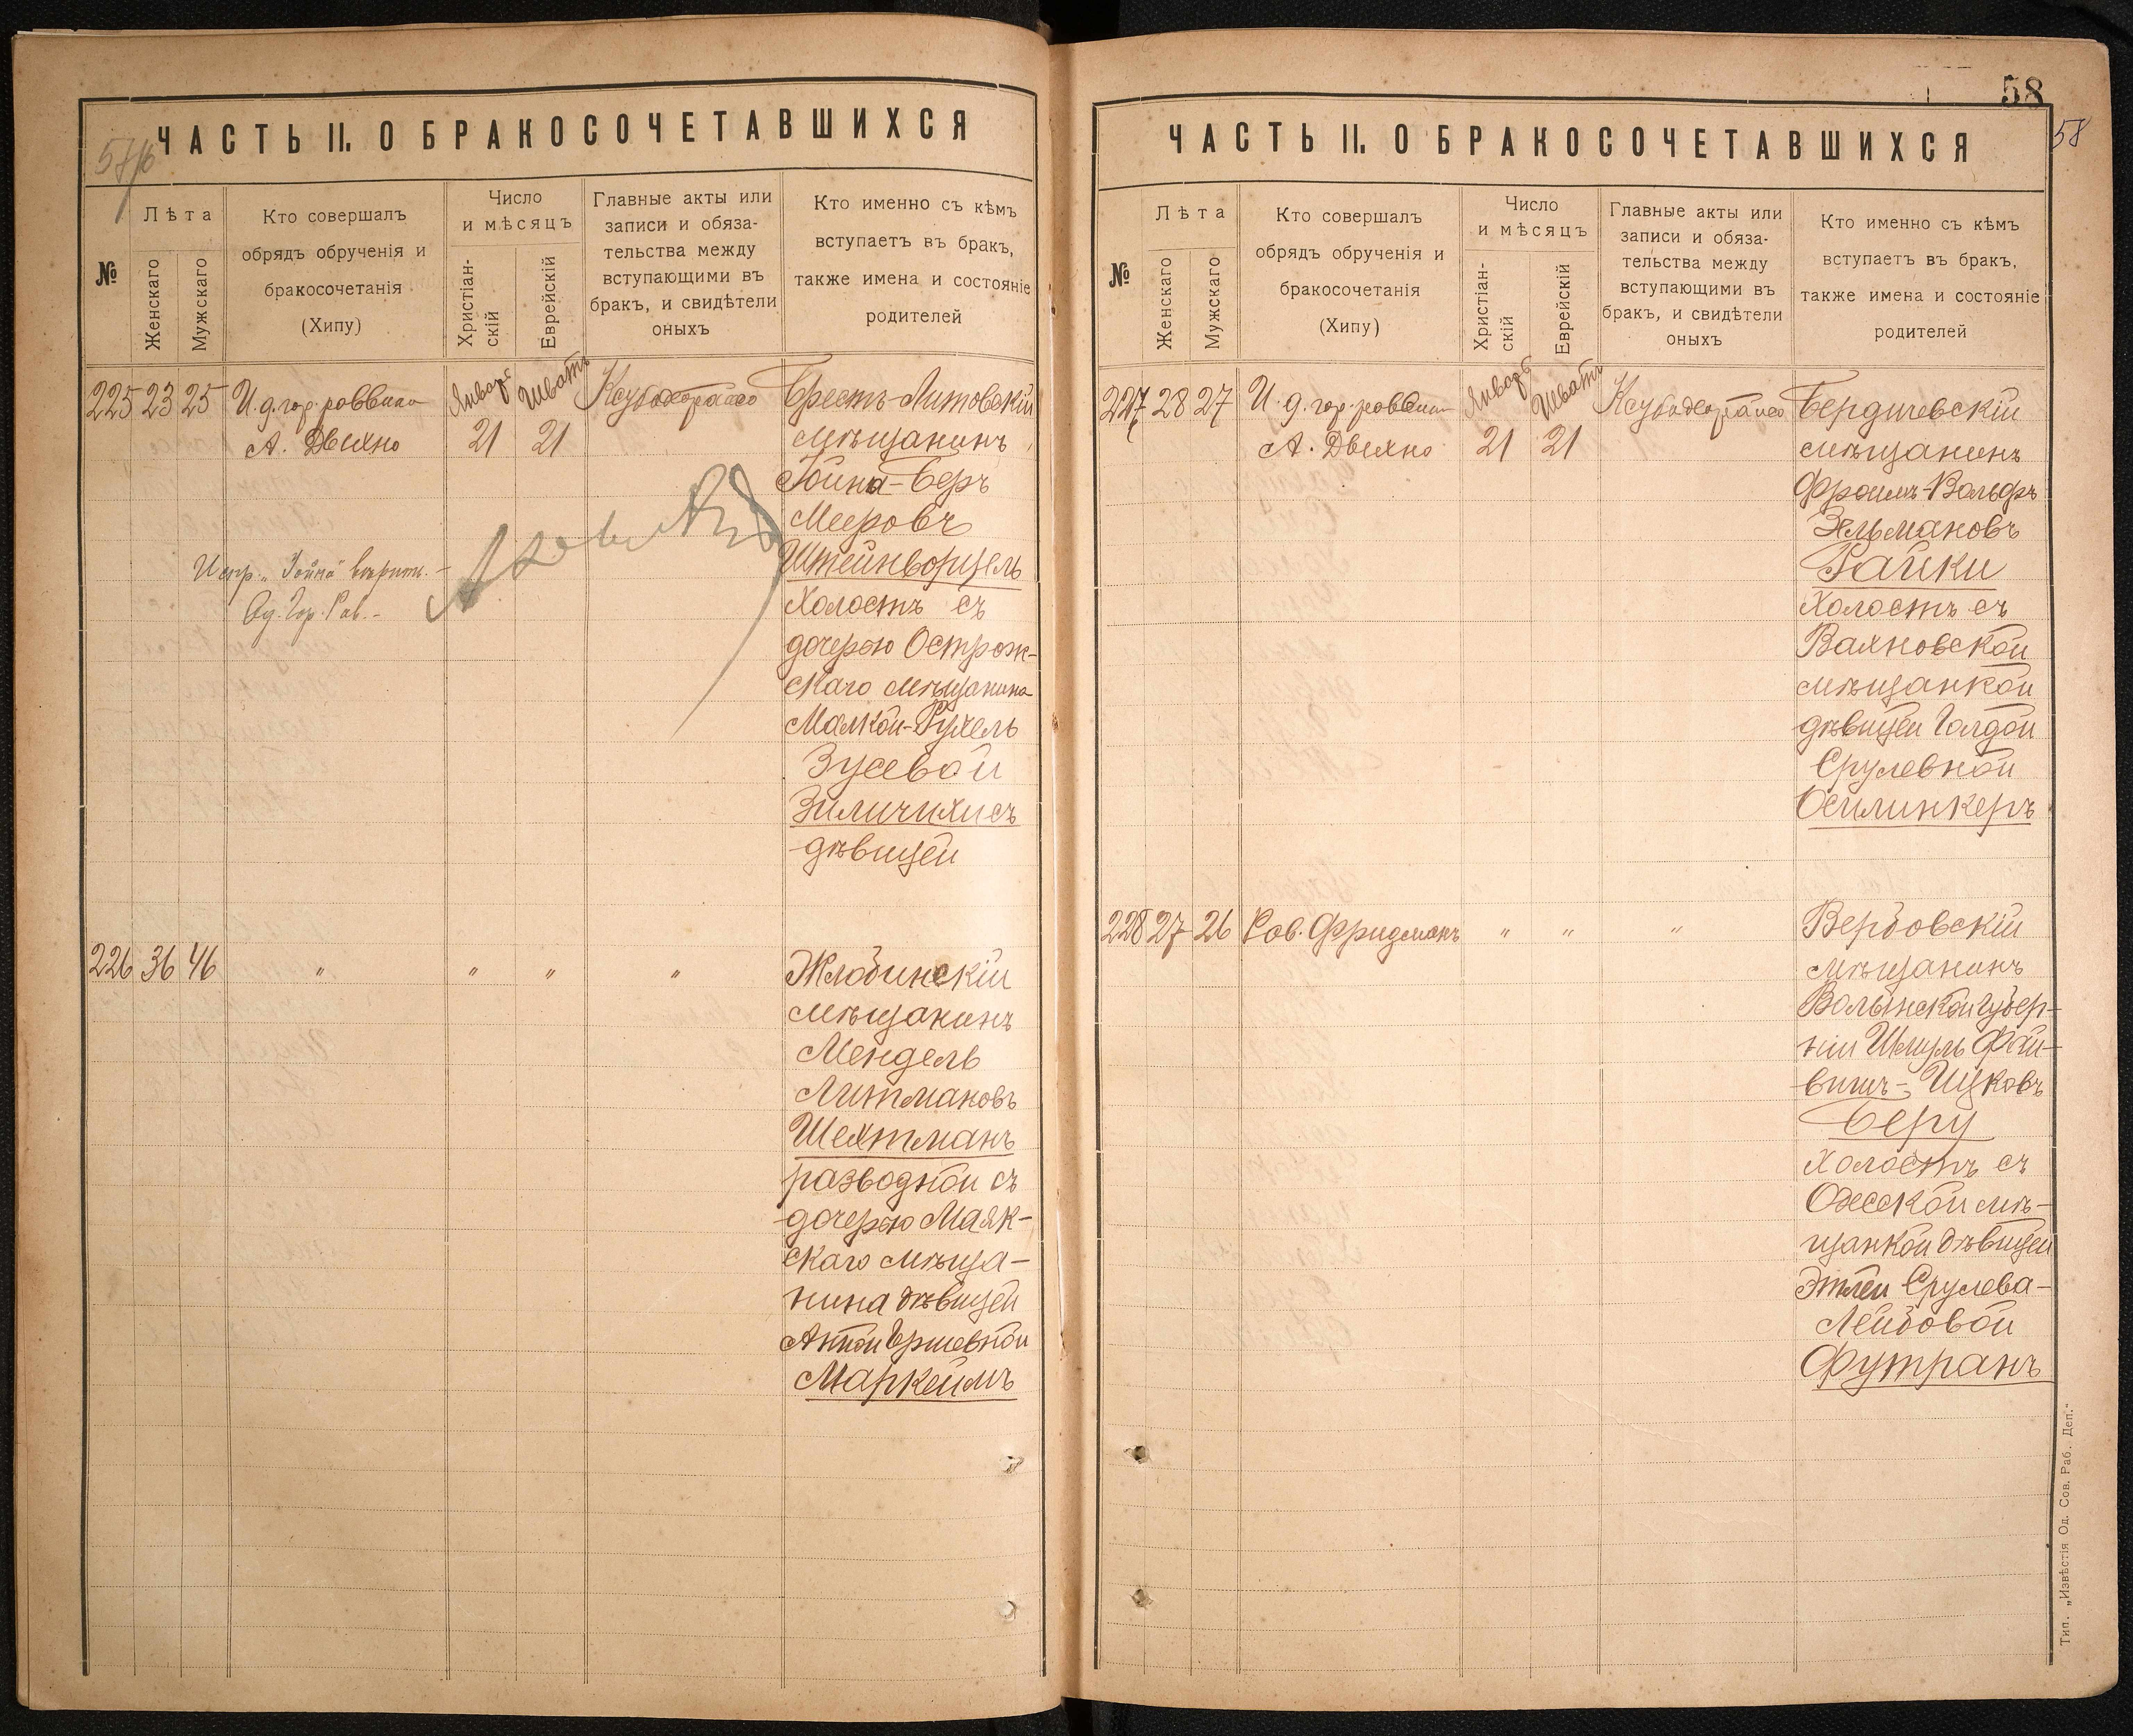 ЧАСТЬ II. О БРАКОСОЧЕТАВШИХСЯ
№
Лѣта
Женскаго
Мужскаго
Кто совершалъ
обрядъ обрученія и
бракосочетанія
(Хипу)
Число
и мѣсяцъ
Христіан-
скій
Еврейскій
Главные акты или
записи и обяза-
тельства между
вступающими въ
бракъ, и свидѣтели
оныхъ
Кто именно съ кѣмъ
вступаетъ въ бракъ,
также имена и состояніе
родителей
225 23 25 И. д. гор. раввина Январь Шватъ Брестъ-Литовскій
А. Двихно 21 21 мѣщанинъ
Іойна-Беръ
Мееровъ
Штейнворцель
Испр. „Іойна"
Од. Гор. Рав.
Холостъ съ
дочерью Острож-
скаго мѣщанина
Малкой-Рухель
Зусевой
Зиличихисъ
дѣвицей
226 36 46 " " " " Жлобинскій
мѣщанинъ
Мендель
Литмановъ
Шехтманъ
разводной съ
дочерью Маяк-
скаго мѣща-
нина дѣвицей
Гершевной
Маркеимъ
58
58
ЧАСТЬ II. О БРАКОСОЧЕТАВШИХСЯ
№
Лѣта
Женскаго
Мужскаго
Кто совершалъ
обрядъ обрученія и
бракосочетанія
(Хипу)
Число
и мѣсяцъ
Христіан-
скій
Еврейскій
Главные акты или
записи и обяза-
тельства между
вступающими въ
бракъ, и свидѣтели
оныхъ
Кто именно съ кѣмъ
вступаетъ въ бракъ,
также имена и состояніе
родителей
227 28 27 И. д. гор. раввина Январь Шватъ Бердичевскій
А. Двихно 21 21 мѣщанинъ
Фроимъ-Вольфъ
Зельмановъ
Райки
Холостъ съ
Вахновской
мѣщанкой
дѣвицей Голдой
Срулевной
Осилинкеръ
228 27 26 Рав. Фридманъ " " " Вербовскій
мѣщанинъ
Волынской губер-
ніи Шмуль Фай-
вишъ-Ицковъ
Беру
Холостъ съ
Одесской мѣ-
щанкой дѣвицей
Этлей Срулева-
Лейбовой
Футранъ
Тип. „Извѣстія Од. Сов. Раб. Деп."